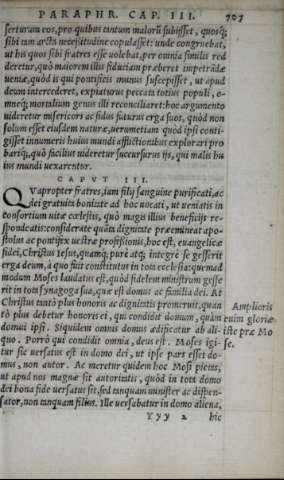 PARAPHR. CAP. III. 707
serturam eos, pro quibus tantum malorū subisset, quosq;
sibi tam arcta necessitudine copulasset: unde congruebat,
ut his quos sibi fratres esse uolebat, per omnia similis red
deretur, quò maiorem illis fiduciam præberet impetrādæ
ueniæ, quòd is qui pontificis munus suscepisset, ut apud
deum intercederet, expiaturus peccata totius populi, o-
mneq; mortalium genus illi reconciliaret: hoc argumento
uideretur misericors ac fidus futurus erga suos, quòd non
solum esset eiusdem naturæ, uerumetiam quòd ipsi conti-
gisset innumeris huius mundi afflictionibus explorari pro
bariq;, quò facilius uideretur succursurus ijs, qui malis hu
ius mundi uexarentur.
CAPVT III.
Quapropter fratres, iam filij sanguine purificati, ac
dei gratuita bonitate ad hoc uocati, ut ueniatis in
consortium uitæ cœlestis, quò magis illius beneficijs re-
spondeatis: considerate quàm dignitate præemineat apo-
stolus ac pontifex uestræ professionis, hoc est, euangelicæ
fidei, Christus Iesus, quamq; purè atq; integrè se gesserit
erga deum, à quo fuit constitutus in tota ecclesia: quemad
modum Moses laudatus est, quòd fidelem ministrum gesse
rit in tota synagoga sua, quæ est domus ac familia dei. At
Christus tantò plus honoris ac dignitatis promeruit, quan
tò plus debetur honoris ei, qui condidit domum, quàm
domui ipsi. Siquidem omnis domus ædificatur ab ali-
quo. Porrò qui condidit omnia, deus est. Moses igi-
tur sic uersatus est in domo dei, ut ipse pars esset do-
mus, non autor. Ac meretur quidem hoc Mosi pietas,
ut apud nos magnæ sit autoritatis, quòd in tota domo
dei bona fide uersatus sit, sed tanquam minister ac dispen-
sator, non tanquam filius. Ille uersabatur in domo aliena,
Yyy 2 hic
Amplioris
enim gloriæ
iste præ Mo
se.